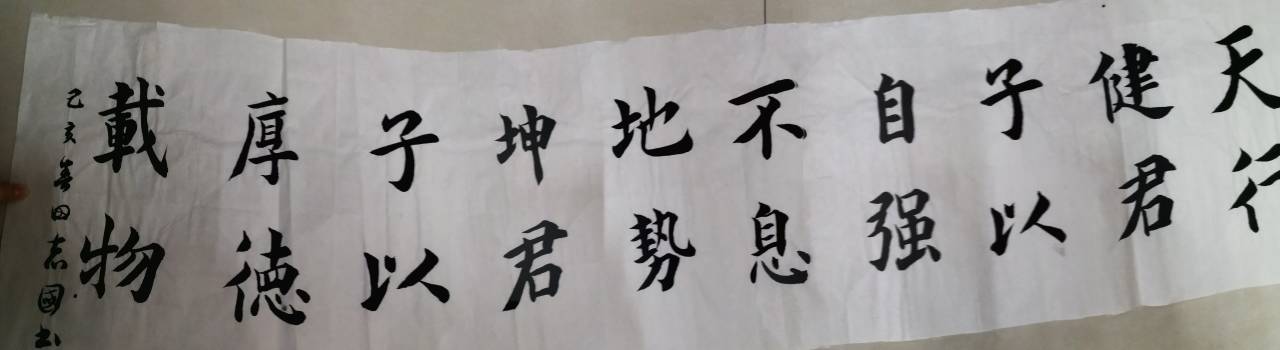 天行
健君
子以
自强
不息
地势
坤君
子以
厚德
載物
己亥春田志國书